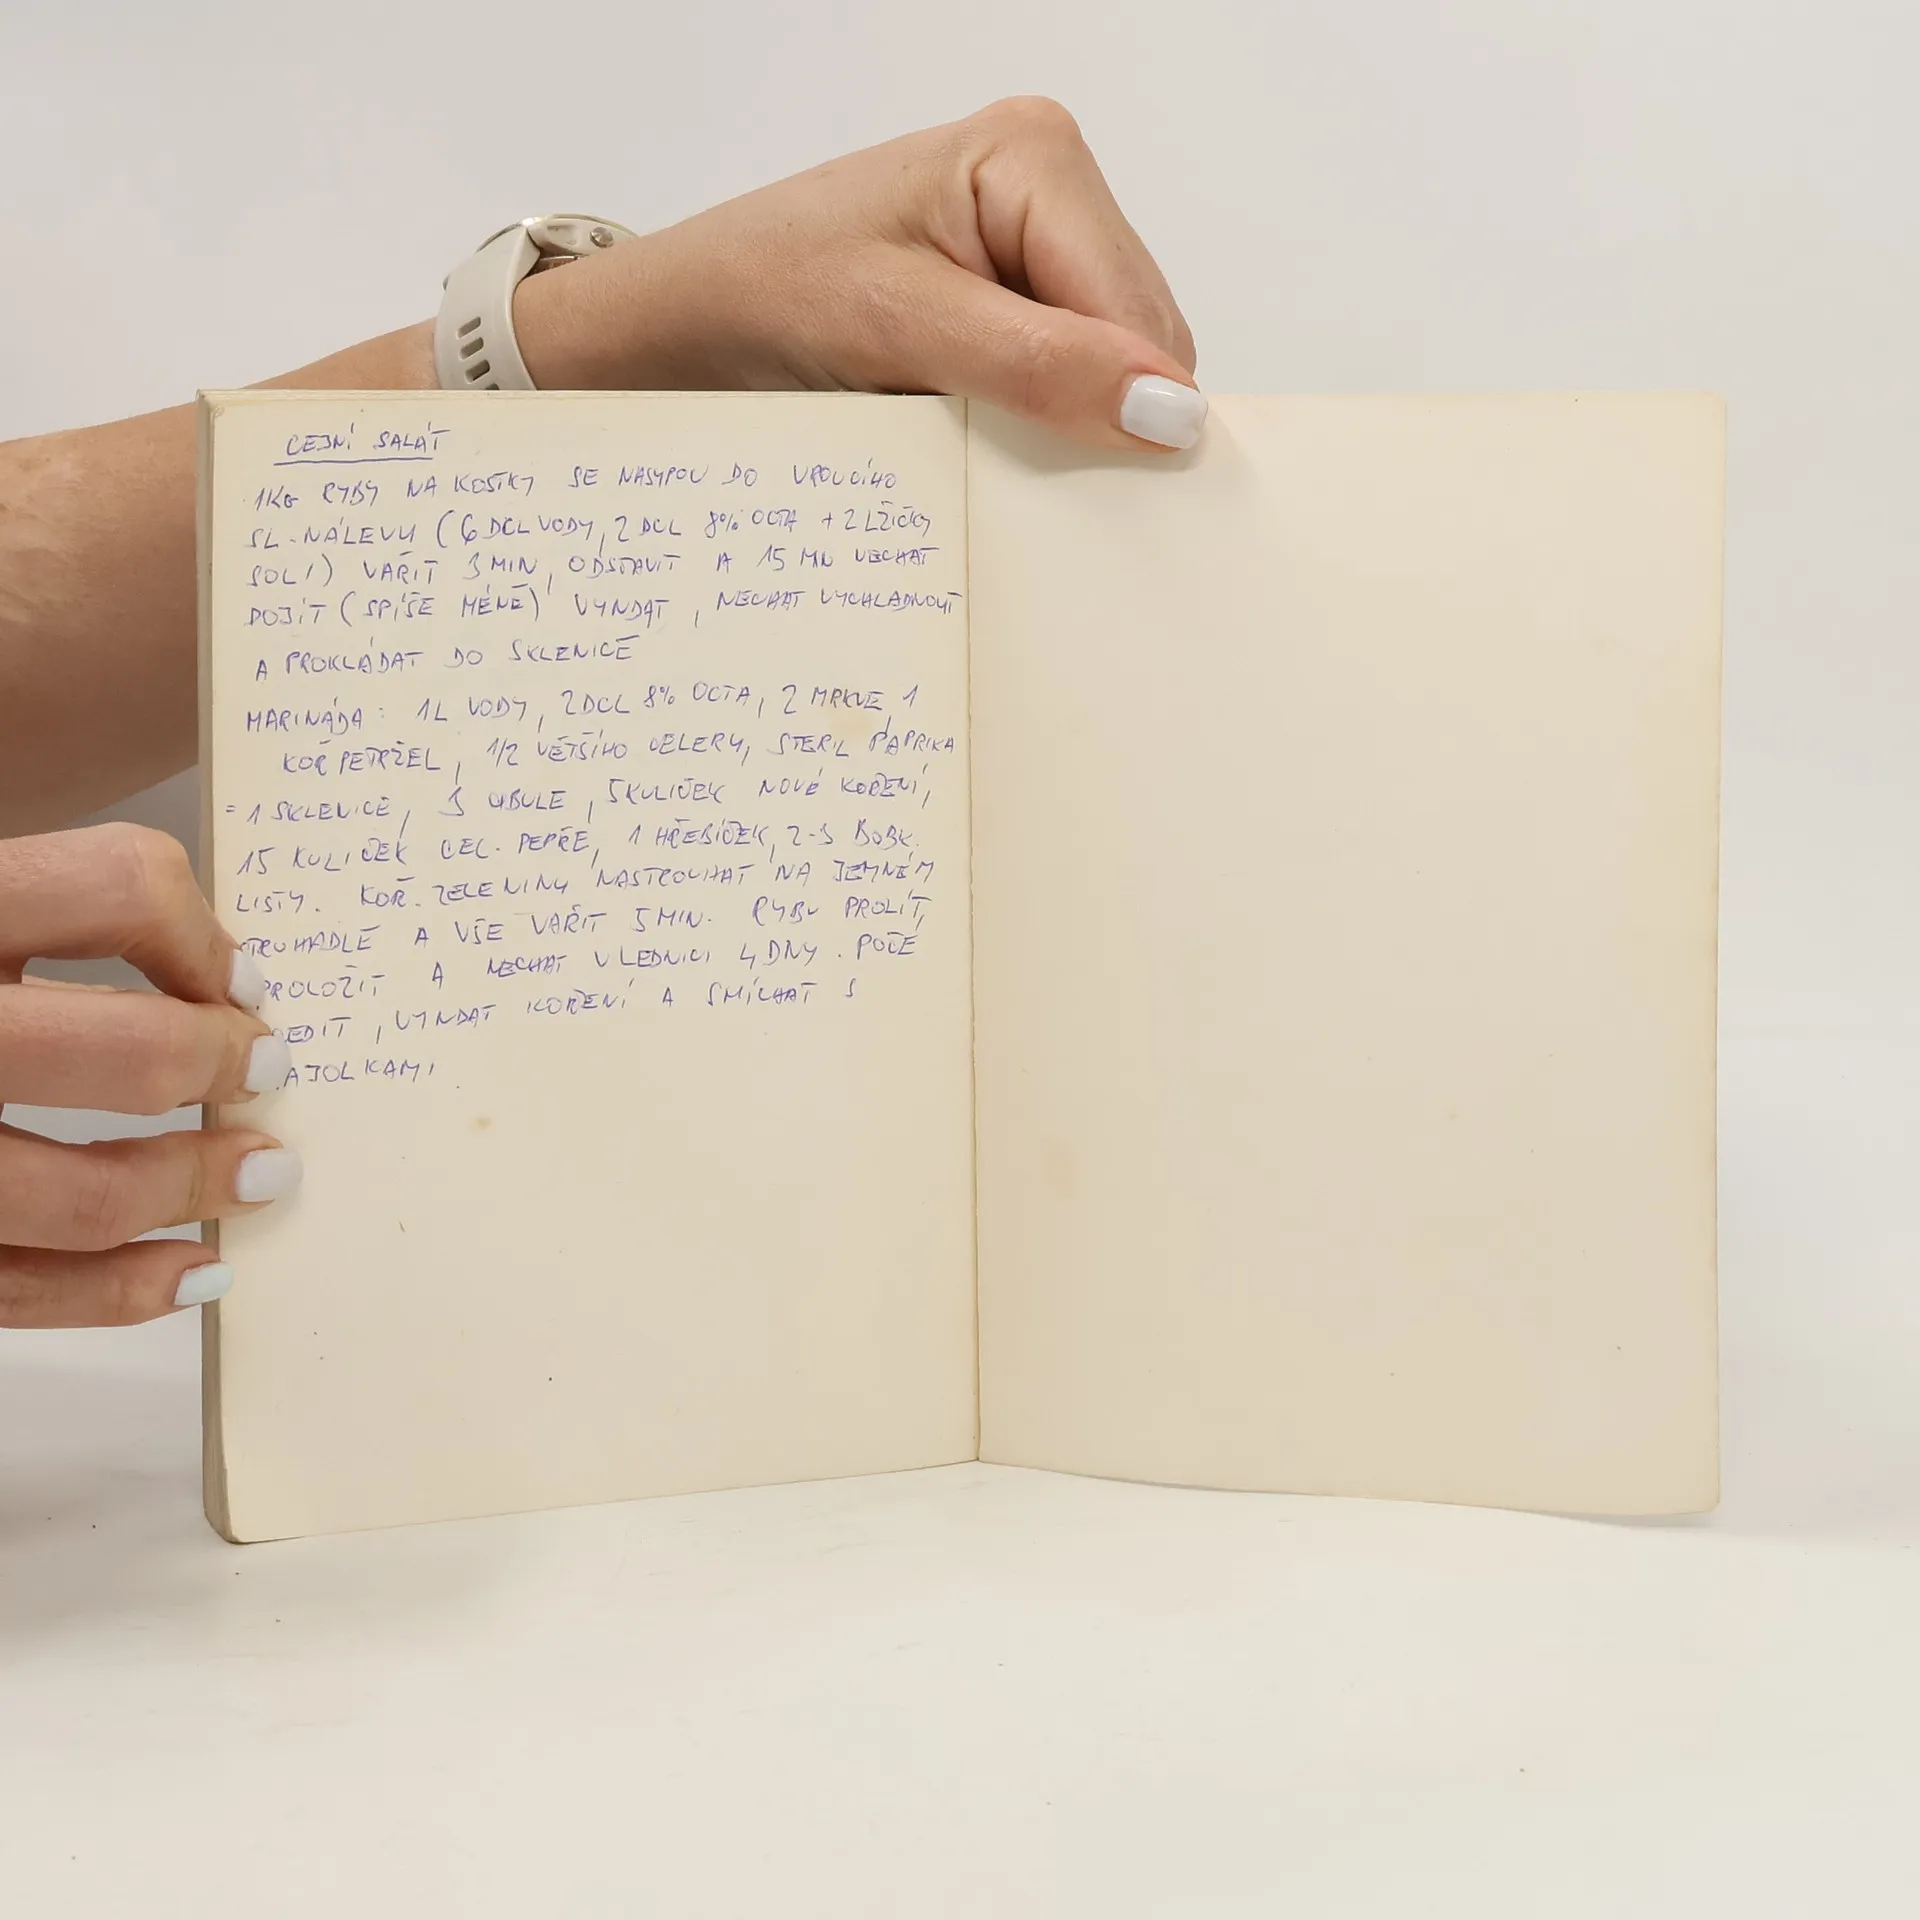 CEJNÍ SALÁT
1KG RYBY NA KOSTKY SE NASYPOU DO VROUCÍHO
SL. NÁLEVU (6 DCL VODY, 2 DCL 8% OCTA + 2 LŽIČKY
SOLI) VAŘIT 3 MIN, ODSTAVIT A 15 MIN NECHAT
DOJÍT (SPÍŠE MÉNĚ) VYNDAT, NECHAT VYCHLADNOUT
A PROKLÁDAT DO SKLENICE
MARINÁDA: 1L VODY, 2DCL 8% OCTA, 2 MRKVE, 1
KOŘ PETRŽEL, 1/2 VĚTŠÍHO CELERU, STERIL PAPRIKA
= 1 SKLENICE, 3 CIBULE, 5 KULIČEK NOVÉ KOŘENÍ,
15 KULIČEK CEL. PEPŘE, 1 HŘEBÍČEK, 2-3 BOBK.
LISTY. KOŘ. ZELENINU NASTROUHAT NA JEMNÉM
STRUHADLE A VŠE VAŘIT 5 MIN. RYBU PROLÍT,
PROLOŽIT A NECHAT V LEDNICI 4 DNY. POČÉ
EDIT, VYNDAT KOŘENÍ A SMÍCHAT S
AJOLKAMI